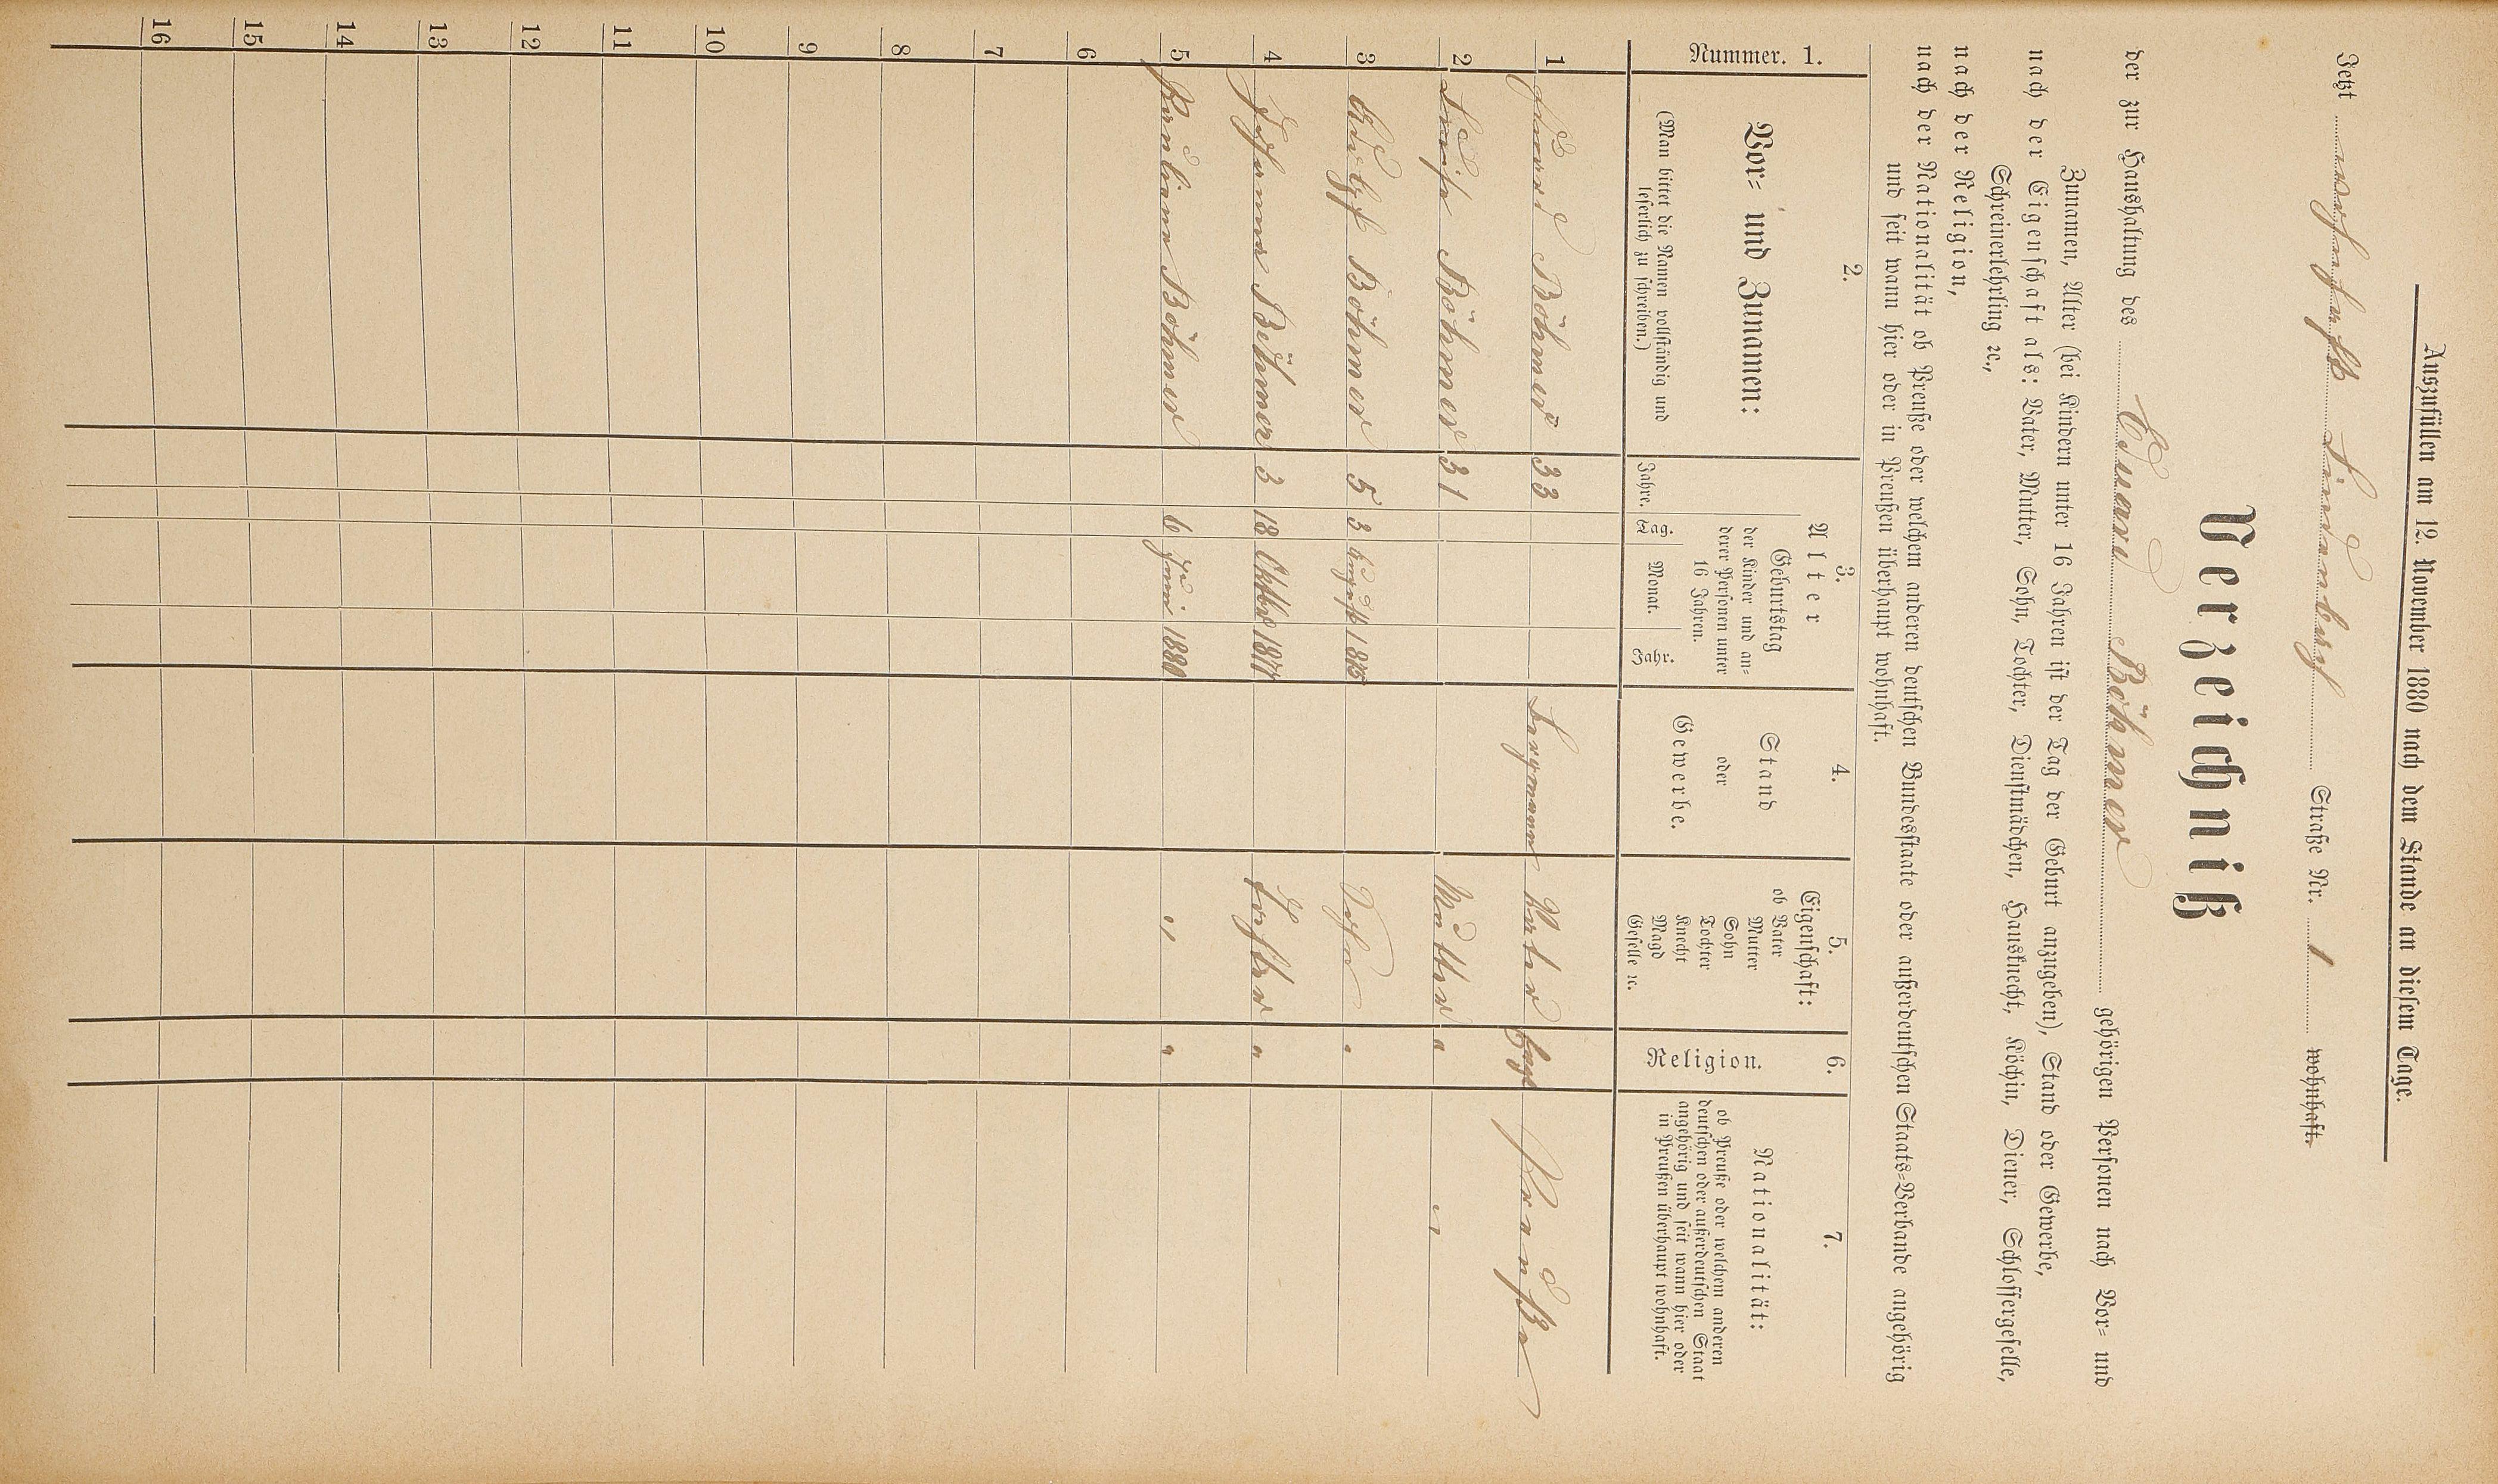 Auszufüllen am 12. November 1880 nach dem Stande an diesem Tage.
Jetzt wohnhaft Lindenhof Straße Nr. 1 wohnhaft.
Verzeichniß
der zur Haushaltung des Eduard Böhmer gehörigen Personen nach Vor= und
Zunamen, Alter (bei Kindern unter 16 Jahren ist der Tag der Geburt anzugeben), Stand oder Gewerbe,
nach der Eigenschaft als: Vater, Mutter, Sohn, Tochter, Dienstmädchen, Hausknecht, Köchin, Diener, Schlossergeselle,
Schreinerlehrling ꝛc.,
nach der Religion,
nach der Nationalität ob Preuße oder welchem anderen deutschen Bundesstaate oder außerdeutschen Staats=Verbande angehörig
und seit wann hier oder in Preußen überhaupt wohnhaft.
Nummer. 1.
2.
Vor= und Zunamen:
(Man bittet die Namen vollständig und
leserlich zu schreiben.)
3.
Alter
Jahre.
Geburtstag
der Kinder und an=
derer Personen unter
16 Jahren.
Tag. Monat. Jahr.
4.
Stand
oder
Gewerbe.
5.
Eigenschaft:
ob Vater
Mutter
Sohn
Tochter
Knecht
Magd
Geselle ꝛc.
6.
Religion.
7.
Nationalität:
ob Preuße oder welchem anderen
deutschen oder außerdeutschen Staat
angehörig und seit wann hier oder
in Preußen überhaupt wohnhaft.
1 Eduard Böhmer 33 Bergmann Vater Preuße
2 Luise Böhmer 31 Mutter " "
3 Böhmer 5 3 August 1875 Sohn "
4 Johanna Böhmer 3 18 Oktber 1877 Tochter "
5 Pauline Böhmer 6 Juni 1880 " "
6
7
8
9
10
11
12
13
14
15
16